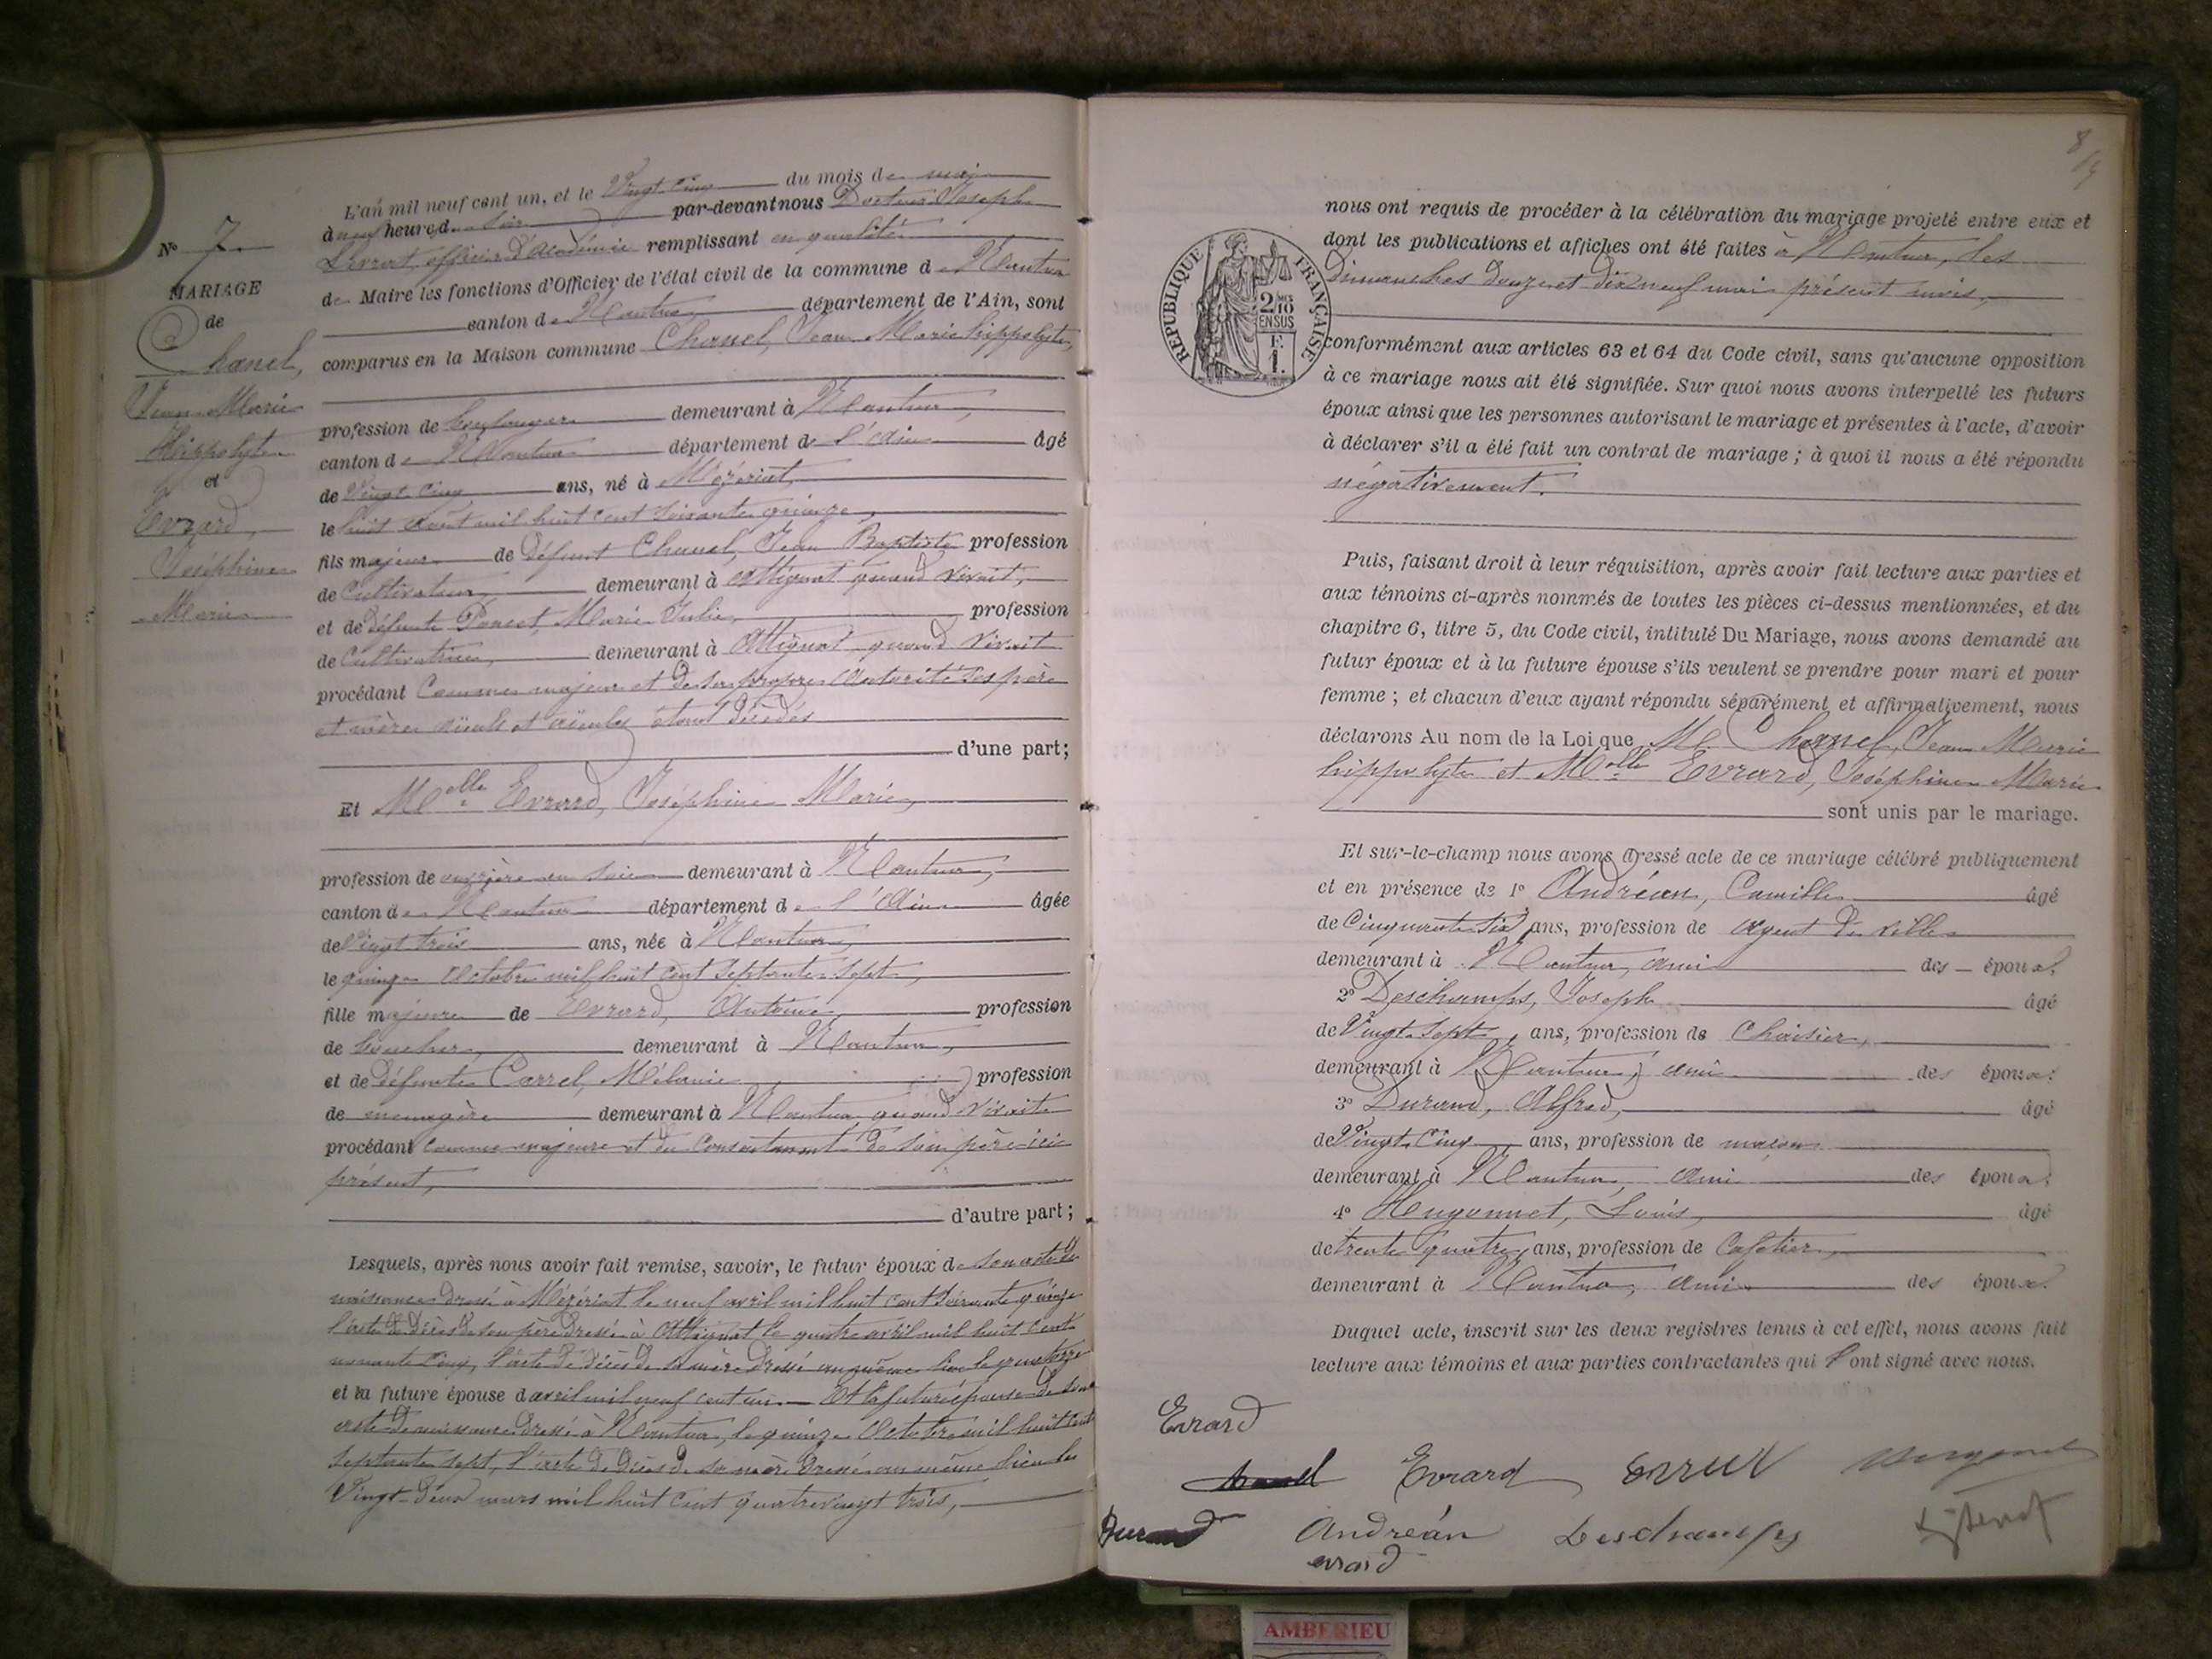 L'an mil neuf cent un, et le Vingt cinq du mois de mai
à neuf heures du soir par-devant nous Docteur Joseph
officier d'académie remplissant en qualité
de Maire les fonctions d'Officier de l'état civil de la commune de Nantua
canton de Nantua département de l'Ain, sont
comparus en la Maison commune Chanel, Jean Marie hippolyte,
N° 7.
MARIAGE
de
Chanel,
Jean Marie
Hippolyte
et
Evrard,
Joséphine
Marie
profession de boulanger demeurant à Nantua,
canton de Nantua département de l'Ain âgé
de Vingt cinq ans, né à Mézériat,
le huit août mil huit cent soixante quinze,
fils majeur de défunt Chanel, Jean Baptiste profession
de Cultivateur, demeurant à Attignat quand vivait,
et de défunte Poncet, Marie Julie, profession
de Cultivatrice, demeurant à Attignat quand vivait
procédant Comme majeur et de sa propre autorité ses père
et mère aïeuls et aïeules étant décédés
d'une part;
Et Melle Evrard, Joséphine Marie,
profession de ouvrière en soie demeurant à Nantua,
canton de Nantua département de l'Ain âgée
de Vingt trois ans, née à Nantua,
le quinze Octobre mil huit cent septante sept,
fille majeure de Evrard, Antoine, profession
de boucher, demeurant à Nantua,
et de défunte Carrel, Mélanie profession
de menagère demeurant à Nantua quand vivait
procédant comme majeure et du consentement de son père ici
présent,
d'autre part;
Lesquels, après nous avoir fait remise, savoir, le futur époux de son acte de
naissance dressé à Mézériat le neuf avril mil huit cent soixante quinze
l'acte de décès de son père dressé à Attignat le quatre avril mil huit cent
nonante cinq, l'acte de décès de sa mère dressé au même lieu le quatorze
et la future épouse d avril mil neuf cent un. Et la future épouse de son
acte de naissance dressé à Nantua, le quinze Octobre mil huit cent
septante sept, l'acte de décès de sa mère dressé au même lieu le
Vingt-deux mars mil huit cent quatrevingt trois,
8
RÉPUBLIQUE FRANÇAISE
2/10
EN SUS
F.
1.
nous ont requis de procéder à la célébration du mariage projeté entre eux et
dont les publications et affiches ont été faites à Nantua, les
Dimanches douze et dix neuf mai présent mois,
conformément aux articles 63 et 64 du Code civil, sans qu'aucune opposition
à ce mariage nous ait été signifiée. Sur quoi nous avons interpellé les futurs
époux ainsi que les personnes autorisant le mariage et présentes à l'acte, d'avoir
à déclarer s'il a été fait un contrat de mariage ; à quoi il nous a été répondu
négativement.
Puis, faisant droit à leur réquisition, après avoir fait lecture aux parties et
aux témoins ci-après nommés de toutes les pièces ci-dessus mentionnées, et du
chapitre 6, titre 5, du Code civil, intitulé Du Mariage, nous avons demandé au
futur époux et à la future épouse s'ils veulent se prendre pour mari et pour
femme ; et chacun d'eux ayant répondu séparément et affirmativement, nous
déclarons Au nom de la Loi que M. Chanel, Jean Marie
hippolyte et Melle Evrard, Joséphine Marie
sont unis par le mariage.
Et sur-le-champ nous avons dressé acte de ce mariage célébré publiquement
et en présence de 1° Andréan, Camille âgé
de Cinquante six ans, profession de agent de ville
demeurant à Nantua, ami des époux.
2° Deschamps, Joseph âgé
de Vingt-sept, ans, profession de Chaisier,
demeurant à Nantua, ami des époux.
3° Durand, Alfred, âgé
de Vingt-cinq ans, profession de maçon
demeurant à Nantua, ami des époux.
4° Hugonnet, Louis, âgé
de trente quatre, ans, profession de Cafetier,
demeurant à Nantua, ami des époux.
Duquel acte, inscrit sur les deux registres tenus à cet effet, nous avons fait
lecture aux témoins et aux parties contractantes qui l'ont signé avec nous.
Evrard
Chanel Evrard
Durand Andreán Deschamps
evrard
AMBERIEU